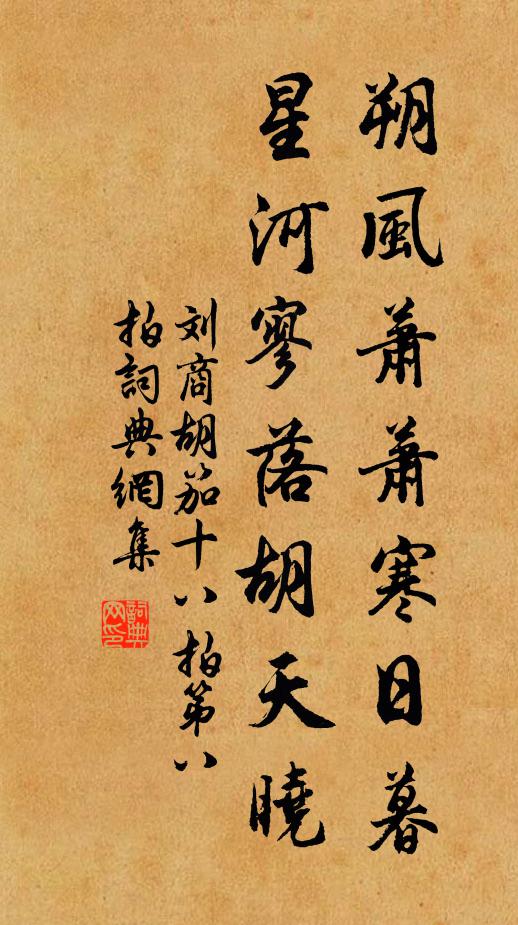 朔風蕭蕭寒日暮
星河寥落胡天曉
刘商胡笳十八拍第八
拍詞典網集
詞典
网印